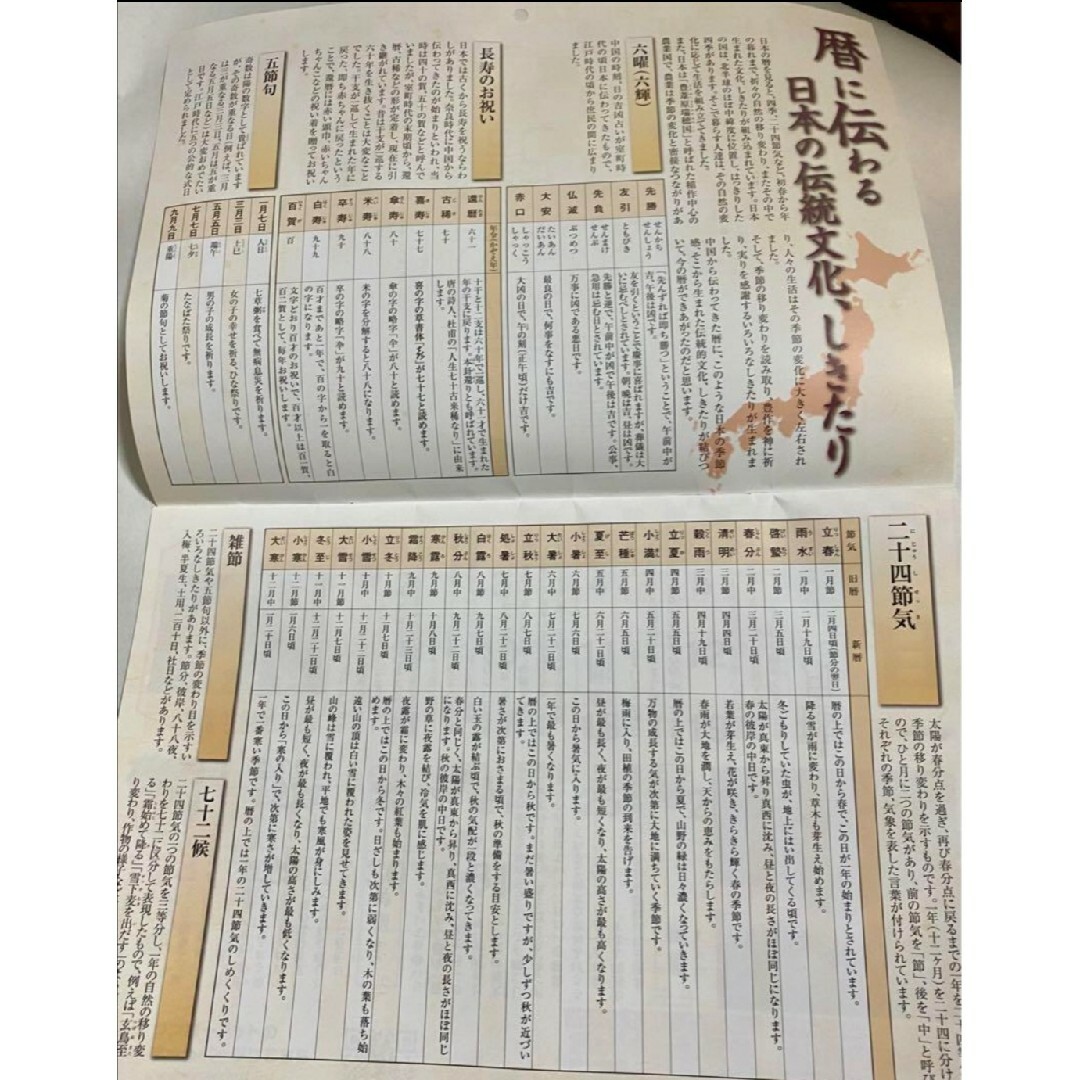 暦に伝わる
日本の伝統文化、しきたり
日本の暦を見ると、四季、二十四節気など、初春から年
の暮れまで、折々の自然の移り変わり、またその中で
生まれた文化、しきたりが組み込まれています。日本
の国は、北半球のほぼ中緯度に位置し、はっきりした
四季があります。そこで暮らす人達は、その自然の変
化に応じて生活を組み立ててきました。
また、日本は「豊葦原瑞穂国」と呼ばれた稲作中心の
農業国で、農業は季節の変化と密接なつながりがあ
り、人々の生活はその季節の変化に大きく左右され
ました。
そして、季節の移り変わりを読み取り、豊作を神に祈
り、実りを感謝するいろいろなしきたりが生まれま
した。
中国から伝わってきた暦に、このような日本の季節
感、そこから生まれた伝統的文化、しきたりが結びつ
いて、今の暦ができあがったのだと思います。
六曜(六輝)
中国の時刻、日の吉凶占いが室町時
代の頃日本に伝わってきたもので、
江戸時代の頃から庶民の間に広まり
ました。
先勝 せんかち せんしょう 「先んずれば即ち勝つ」ということで、午前中が
吉、午後は凶です。
友引 ともびき 友を引くということで慶事に喜ばれますが、葬儀は大
いに忌むべしとされています。朝、晩は吉、昼は凶です。
先負 せんまけ せんぷ 先勝と逆で、午前中が凶で午後は吉です。公事、
急用は忌む日とされています。
仏滅 ぶつめつ 万事に凶である悪日です。
大安 たいあん だいあん 最良の日で、何事をなすにも吉です。
赤口 しゃっこう しゃっく 大凶の日で、午の刻(正午頃)だけ吉です。
長寿のお祝い
日本では古くから長寿を祝うならわ
しがありました。奈良時代に中国から
伝わってきたのが始まりといわれ、当
時は四十の賀、五十の賀などと呼んで
いましたが、室町時代の末期頃から、還
暦、古稀などの形が定着し、現在に引
き継がれています。昔は干支が一巡する
六十年を生き抜くことは大変なこと
でした。干支が一巡して生まれた年に
戻った、即ち赤ちゃんに戻ったという
ことで、還暦には赤い頭巾、赤いちゃん
ちゃんこなどの祝い着を贈ってお祝い
します。
年令(かぞえ年)
還暦 六十一 十干と十二支は六十年で一巡し、六十一才で生まれた
年の干支に戻ります。本卦還りとも呼ばれています。
古稀 七十 唐の詩人、杜甫の「人生七十古来稀なり」に由来
します。
喜寿 七十七 喜の字の草書体(㐂)が七十七と読めます。
傘寿 八十 傘の字の略字「仐」が八十と読めます。
米寿 八十八 米の字を分解すると八十八になります。
卒寿 九十 卒の字の略字「卆」が九十と読めます。
白寿 九十九 百才まであと一年で、百の字から一を取ると白
の字になります。
百賀 百 文字どおり百才のお祝いで、百才以上は百一賀、
百二賀として、毎年お祝いします。
五節句
奇数は陽の数字として喜ばれています
が、その奇数が重なる日(例えば、三月
は三が重なる三月三日、五月は五が重
なる五月五日など)は大変おめでたい
日です。江戸時代に五つの公的な式日
として定められました。
一月七日 人日 七草粥を食べて無病息災を祈ります。
三月三日 上巳 女の子の幸せを祈る、ひな祭りです。
五月五日 端午 男の子の成長を祈ります。
七月七日 七夕 たなばた祭りです。
九月九日 重陽 菊の節句としてお祝いします。
二十四節気
太陽が春分点を過ぎ、再び春分点に戻るまでの一年を二十四
季節の移り変わりを示すものです。一年(十二ヶ月)を二十四に分け
ので、ひと月に二つの節気があり、前の節気を「節」、後を「中」と呼び
それぞれの季節、気象を表した言葉が付けられています。
節気 旧暦 新暦
立春 一月節 二月四日頃(節分の翌日) 暦の上ではこの日から春で、この日が一年の始まりとされています。
雨水 一月中 二月十九日頃 降る雪が雨に変わり、草木も芽生え始めます。
啓蟄 二月節 三月五日頃 冬ごもりしていた虫が、地上にはい出してくる頃です。
春分 二月中 三月二十日頃 太陽が真東から昇り真西に沈み、昼と夜の長さがほぼ同じになります。
春の彼岸の中日です。
清明 三月節 四月四日頃 若葉が芽生え、花が咲き、きらきら輝く春の季節です。
穀雨 三月中 四月十九日頃 春雨が大地を潤し、天からの恵みをもたらします。
立夏 四月節 五月五日頃 暦の上ではこの日から夏で、山野の緑は日々濃くなっていきます。
小満 四月中 五月二十日頃 万物の成長する気が次第に大地に満ちていく季節です。
芒種 五月節 六月五日頃 梅雨に入り、田植の季節の到来を告げます。
夏至 五月中 六月二十一日頃 昼が最も長く、夜が最も短くなり、太陽の高さが最も高くなります。
小暑 六月節 七月六日頃 この日から暑気に入ります。
大暑 六月中 七月二十二日頃 一年で最も暑くなります。
立秋 七月節 八月七日頃 暦の上ではこの日から秋です。まだ暑い盛りですが、少しずつ秋が近づい
てきます。
処暑 七月中 八月二十二日頃 暑さが次第におさまる頃で、秋の準備をする目安とします。
白露 八月節 九月七日頃 白い玉の露が結ぶ頃で、秋の気配が一段と濃くなってきます。
秋分 八月中 九月二十二日頃 春分と同じく、太陽が真東から昇り、真西に沈み、昼と夜の長さがほぼ同じ
になります。秋の彼岸の中日です。
寒露 九月節 十月八日頃 野の草に夜露を結び、冷気を肌に感じます。
霜降 九月中 十月二十三日頃 夜露が霜に変わり、木々の紅葉も始まります。
立冬 十月節 十一月七日頃 暦の上ではこの日から冬です。日ざしも次第に弱くなり、木の葉も落ち始
めます。
小雪 十月中 十一月二十二日頃 遠い山の頂は白い雪に覆われた姿を見せてきます。
大雪 十一月節 十二月七日頃 山の峰は雪に覆われ、平地でも寒風が身にしみます。
冬至 十一月中 十二月二十一日頃 昼が最も短く、夜が最も長くなり、太陽の高さが最も低くなります。
小寒 十二月節 一月六日頃 この日から「寒の入り」で、次第に寒さが増していきます。
大寒 十二月中 一月二十日頃 一年で一番寒い季節です。暦の上では一年の二十四節気のしめくくりです。
雑節
二十四節気や五節句以外に、季節の変わり目を示すい
ろいろなしきたりがあります。節分、彼岸、八十八夜、
入梅、半夏生、土用、二百十日、社日などがあります。
七十二候
二十四節気の一つの節気を三等分し、一年の自然の移り変
わりを七十二に区分して表現したもので、例えば「玄鳥至
る」「霜始めて降る」「雪下麦を出だす」の
り変わり、作物の様子など